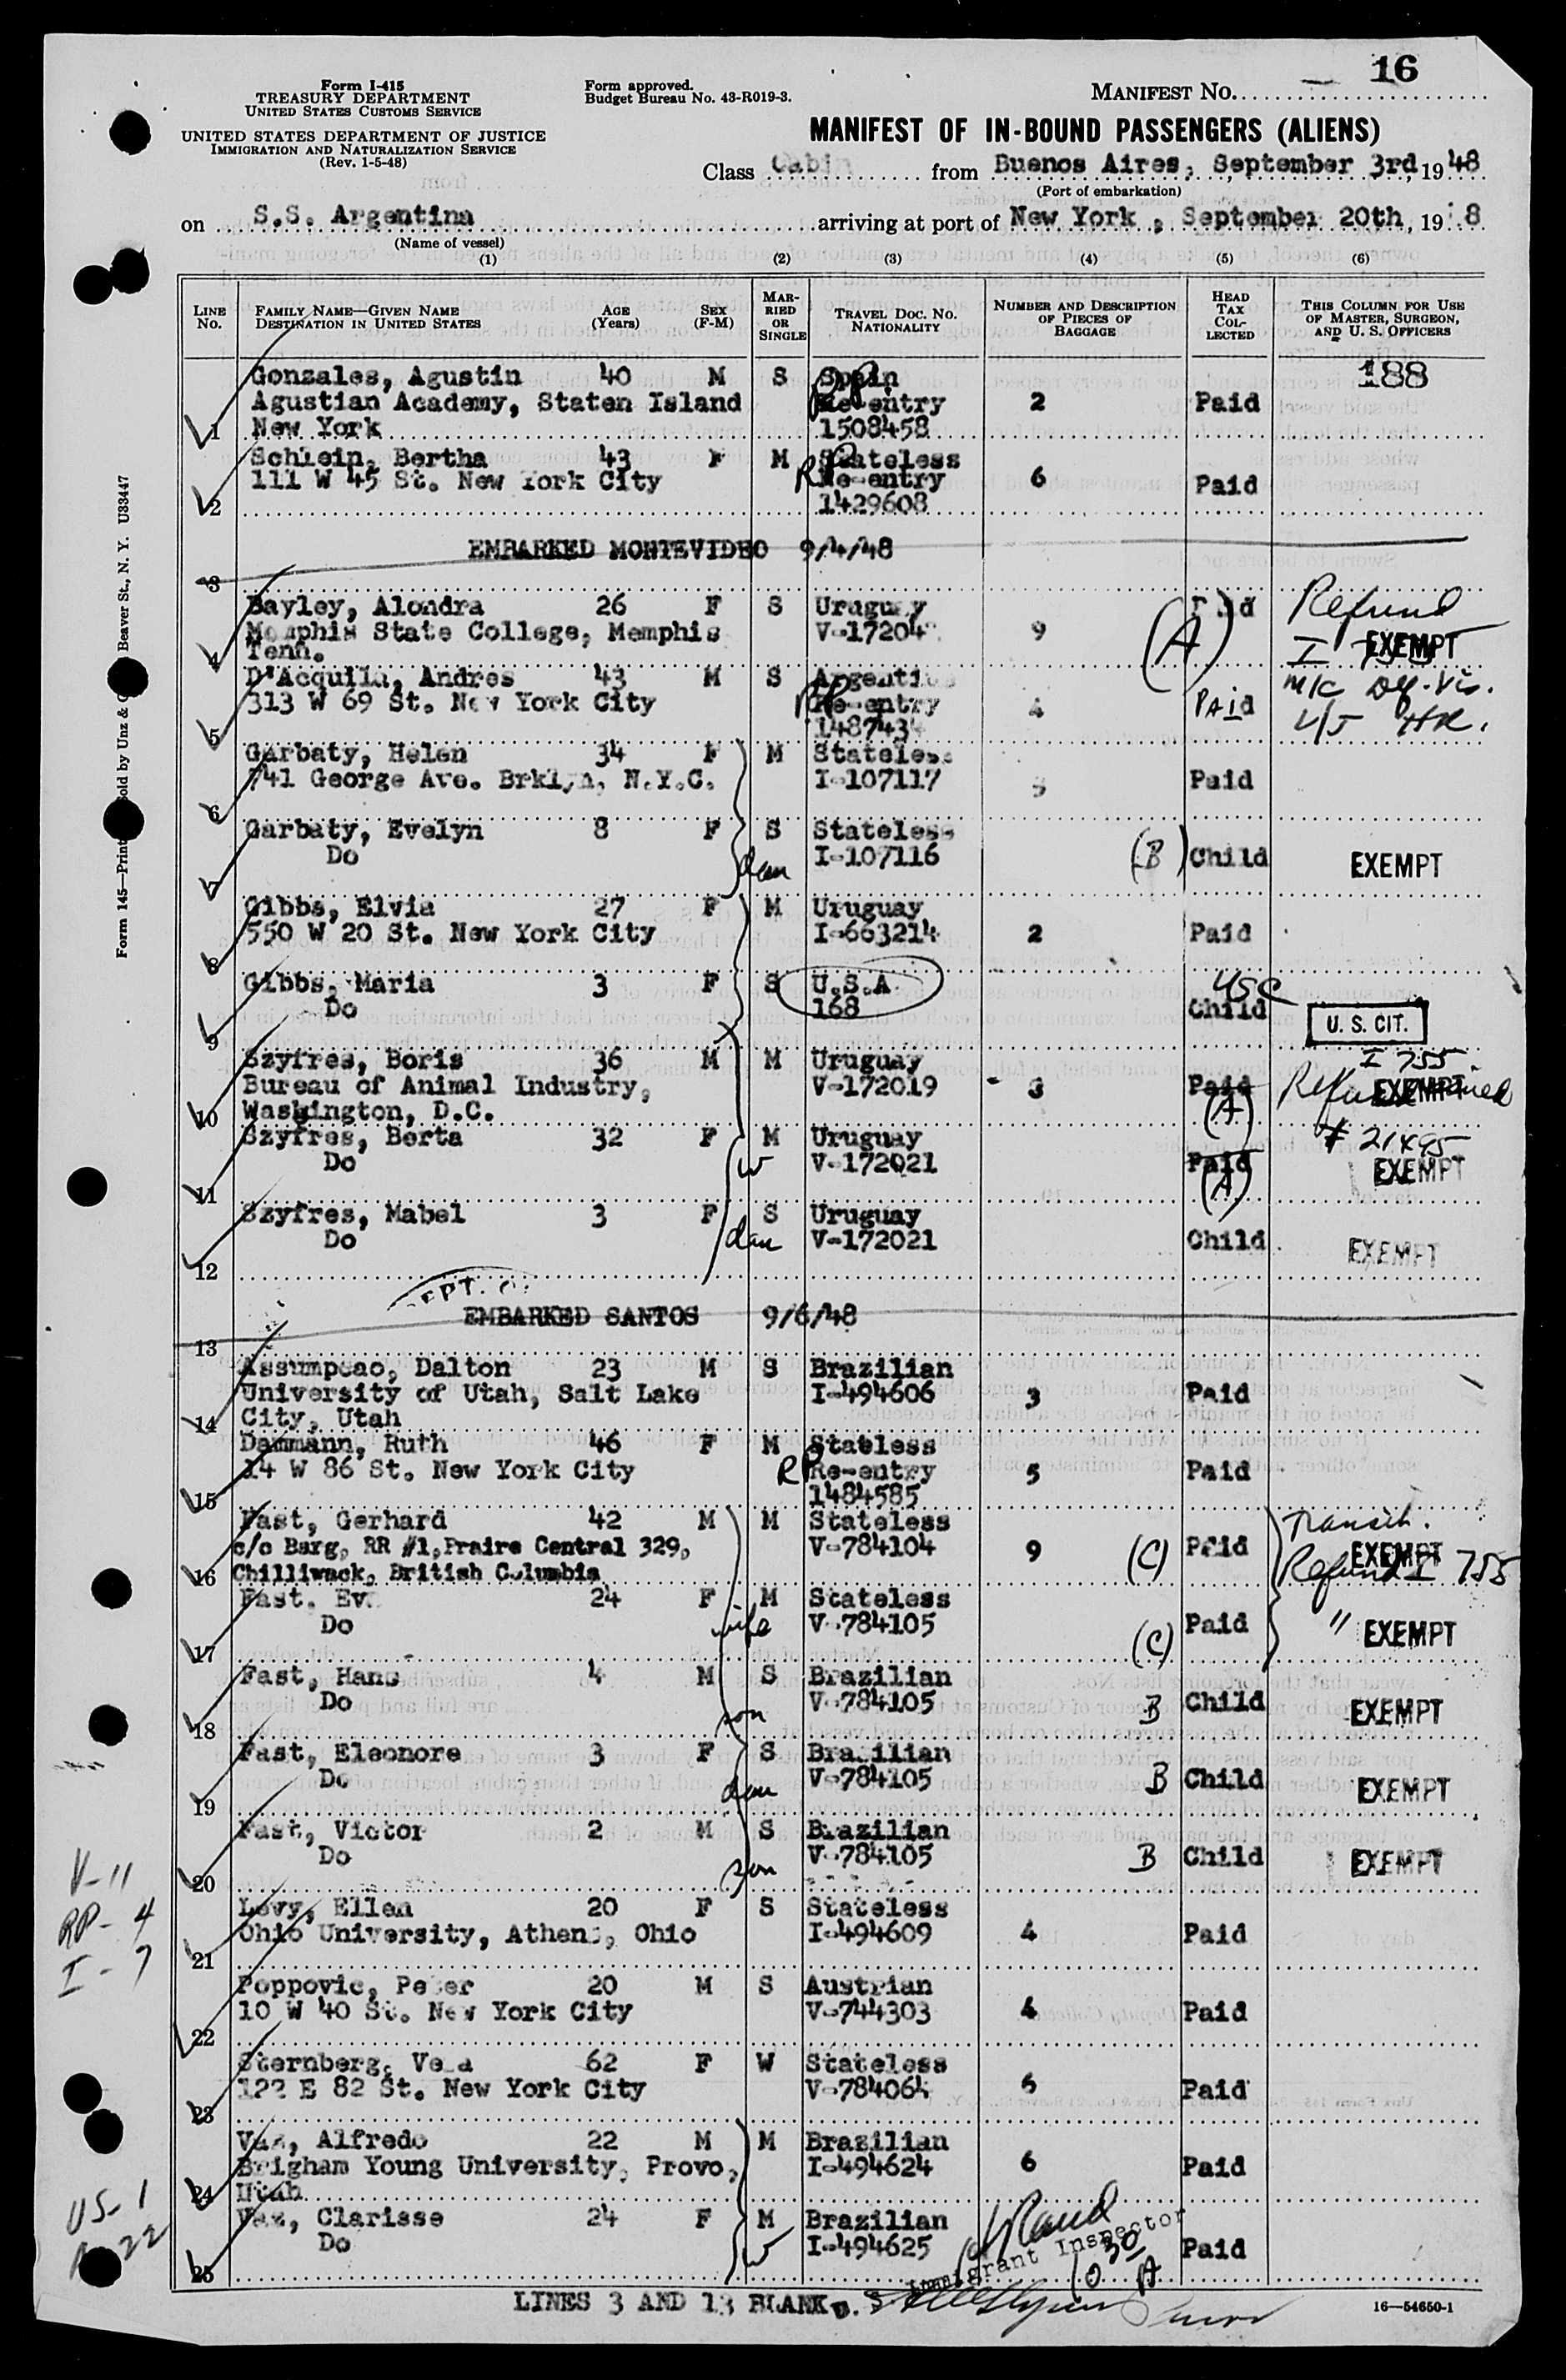 16
Form I-415
TREASURY DEPARTMENT
UNITED STATES CUSTOMS SERVICE
UNITED STATES DEPARTMENT OF JUSTICE
IMMIGRATION AND NATURALIZATION SERVICE
(Rev. 1-5-48)
Form approved.
Budget Bureau No. 43-R019-3.
MANIFEST NO.
MANIFEST OF IN-BOUND PASSENGERS (ALIENS)
Class Cabin from Buenos Aires, September 3rd, 1948
(Port of embarkation)
on S.S. Argentina arriving at port of New York, September 20th, 19 8
(Name of vessel)
(1) (2) (3) (4) (5) (6)
LINE No. FAMILY NAME—GIVEN NAME DESTINATION IN UNITED STATES AGE (Years) SEX (F-M) MARRIED OR SINGLE TRAVEL DOC. NO. NATIONALITY NUMBER AND DESCRIPTION OF PIECES OF BAGGAGE HEAD TAX COLLECTED THIS COLUMN FOR USE OF MASTER, SURGEON, AND U. S. OFFICERS
Gonzales, Agustin 40 M S Spain 188
Agustian Academy, Staten Island RP Re-entry 2 Paid
1 New York 1508458
Schlein, Bertha 43 F M Stateless
111 W 45 St. New York City RP Re-entry 6 Paid
2 1429608
EMBARKED MONTEVIDEO 9/4/48
3
Bayley, Alondra 26 F S Uruguay Paid Refund
Memphis State College, Memphis V-17204 9 (A) I 755 EXEMPT
4 Tenn.
D'Acquila, Andres 43 M S Argentina M/C Def. Vis.
313 W 69 St. New York City RP Re-entry 4 PAId L/J HR.
5 148743
Garbaty, Helen 34 F M Stateless
741 George Ave. Brklyn, N.Y.C. I-107117 Paid
6
Garbaty, Evelyn 8 F S Stateless
Do dau I-107116 (B) Child EXEMPT
7
Gibbs, Elvia 27 F M Uruguay
550 W 20 St. New York City I-663214 2 Paid
8
Gibbs, Maria 3 F S U.S.A. USC
Do 168 Child U. S. CIT.
9
Szyfres, Boris 36 M M Uruguay I 755
Bureau of Animal Industry, V-172019 Paid Refund EXEMPT
10 Washington, D.C. (A)
Szyfres, Berta 32 F M Uruguay # 21495
Do w V-172021 Paid EXEMPT
11 (A)
Szyfres, Mabel 3 F S Uruguay
Do dau V-172021 Child EXEMPT
12
EMBARKED SANTOS 9/6/48
13
Assumpcao, Dalton 23 M S Brazilian
University of Utah, Salt Lake I-494606 3 Paid
14 City, Utah
Dammann, Ruth 46 F M Stateless
14 W 86 St. New York City RP Re-entry 5 Paid
15 1484585
Fast, Gerhard 42 M M Stateless Transit.
c/o Barg, RR #1, Praire Central 329, V-784104 9 (C) Paid EXEMPT
16 Chilliwack, British Columbia Refund I 755
Fast, Eva 24 F M Stateless
Do wife V-784105 (C) Paid " EXEMPT
17
Fast, Hans 4 M S Brazilian
Do son V-784105 B Child EXEMPT
18
Fast, Eleonore 3 F S Brazilian
Do dau V-784105 B Child EXEMPT
19
Fast, Victor 2 M S Brazilian
Do son V-784105 B Child EXEMPT
20
Levy, Ellen 20 F S Stateless
Ohio University, Athens, Ohio I-494609 4 Paid
21
Poppovic, Peter 20 M S Austrian
10 W 40 St. New York City V-744303 4 Paid
22
Sternberg, Vera 62 F W Stateless
122 E 82 St. New York City V-784064 5 Paid
23
Vaz, Alfredo 22 M M Brazilian
Brigham Young University, Provo, I-494624 6 Paid
24 Utah
Vaz, Clarisse 24 F M Brazilian
Do w I-494625 Paid
25
Immigrant Inspector
LINES 3 AND 13 BLANK
16—54650-1
V-11
RP-4
I-7
US-1
22
Form 145—Printed Sold by Unz & Beaver St., N. Y. U33447